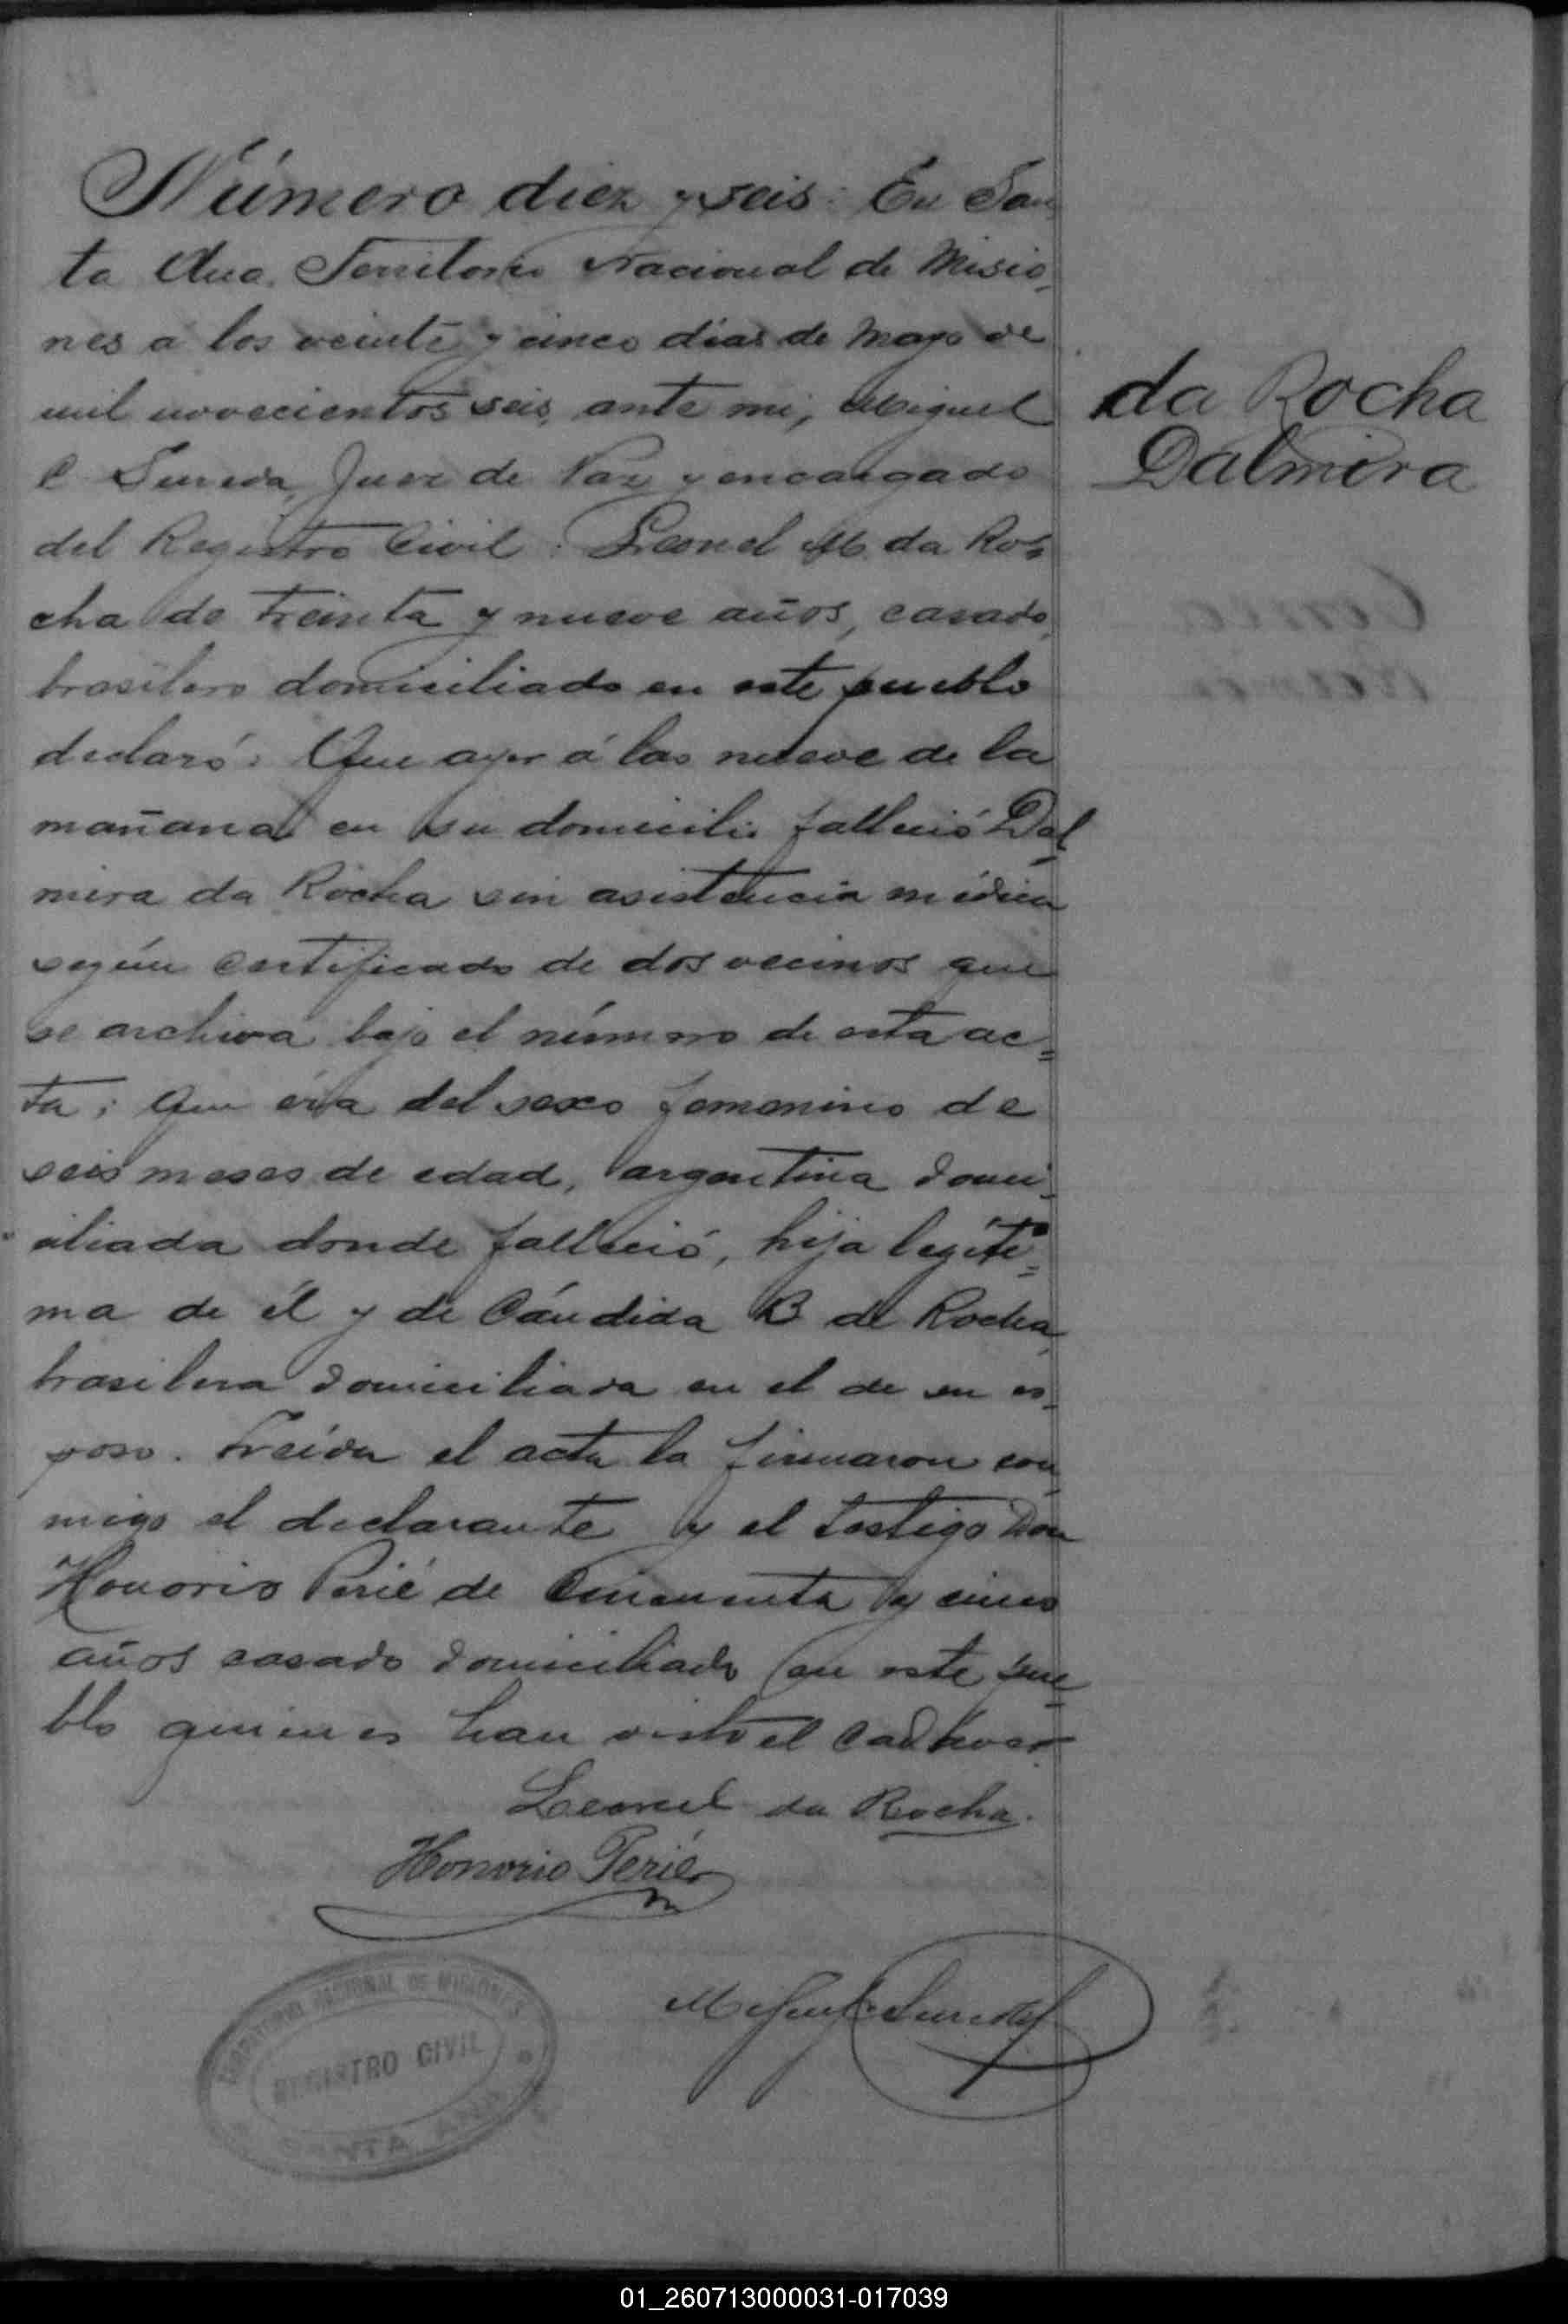 Número diez y seis: En San
ta Ana, Territorio Nacional de Misio_
nes a los veinte y cinco días de Mayo de
mil novecientos seis, ante mi, Miguel
C Juez de Paz y encargado
del Registro Civil: Leonel M. da Ro=
cha de treinta y nueve años, casado,
brasilero domiciliado en este pueblo
declaró: Que ayer á las nueve de la
mañana en su domicilio falleció Dal_
mira da Rocha sin asistencia médica
según certificado de dos vecinos que
se archiva bajo el número de esta ac=
ta; que éra del sexo femenino de
seis meses de edad, argentina domi_
ciliada donde falleció, hija legíti=
ma de él y de Cándida B de Rocha,
brasilera domiciliada en el de su es_
poso. Leída el acta la firmaron con_
migo el declarante y el testigo Don
Honorio Perié de cincuenta y cinco
años casado domiciliado en este pue_
blo quienes han visto el cadáver
Leonel da Rocha.
Honorio Perié
Miguel C.
TERRITORIO NACIONAL DE MISIONES
REGISTRO CIVIL
SANTA ANA
da Rocha
Dalmira
01_260713000031-017039